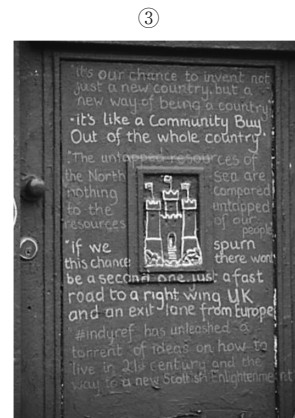 ③
"it's our chance to invent not
just a new country, but a
new way of being a country"
"it's like a Community Buy
Out of the whole country"
"The untapped resources of
the North Sea are
nothing compared
to the untapped
resources of our
people
"if we spurn
this chance there wont
be a second one. just a fast
road to a right wing UK
and an exit lane from Europe
"#indyref has unleashed a
torrent of ideas on how to
live in 21st century and the
way to a new Scottish Enlightenment